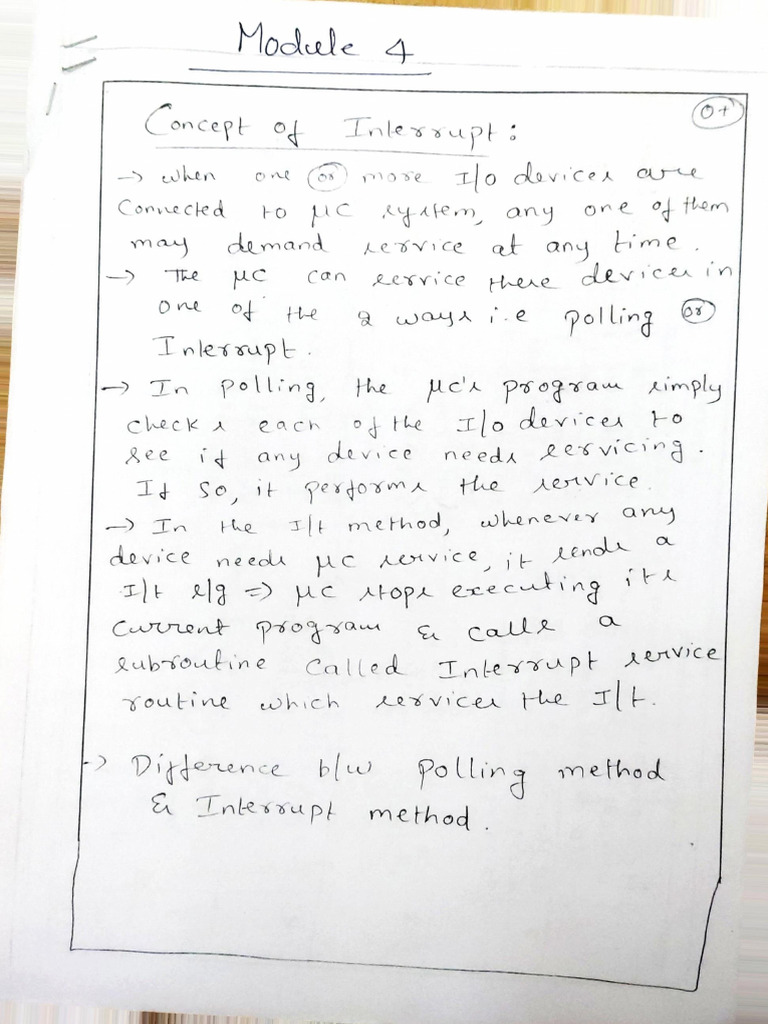 Module 4
Concept of Interrupt :
0+
→ when one or more I/o devices are
Connected to μC system, any one of them
may demand service at any time.
→ The μC can service these devices in
one of the 2 ways i.e polling or
Interrupt.
→ In polling, the μC's program simply
checks each of the I/o devices to
see if any device needs servicing.
If so, it performs the service.
→ In the I/t method, whenever any
device needs μC service, it sends a
I/t s/g => μC stops executing its
current program & calls a
subroutine called Interrupt service
routine which services the I/t.
→ Difference b/w polling method
& Interrupt method.